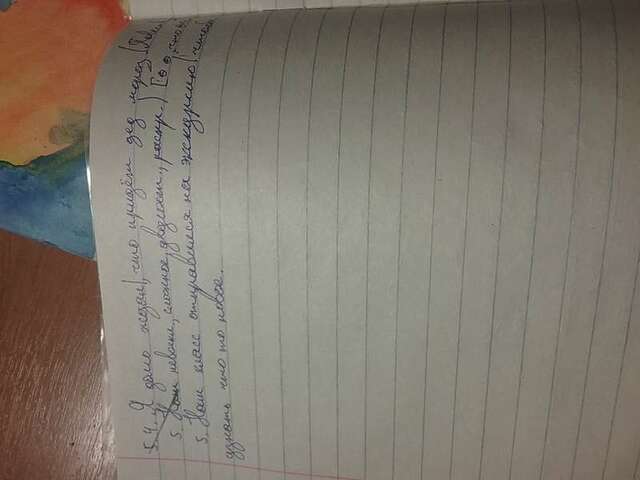 5.4. Я долго ждал, что придёт дед мороз
5. Наш невоскл., сложное, двусост., распр.) [о
5. Наш класс отправился на экскурсию, чтобы
узнать что то новое.